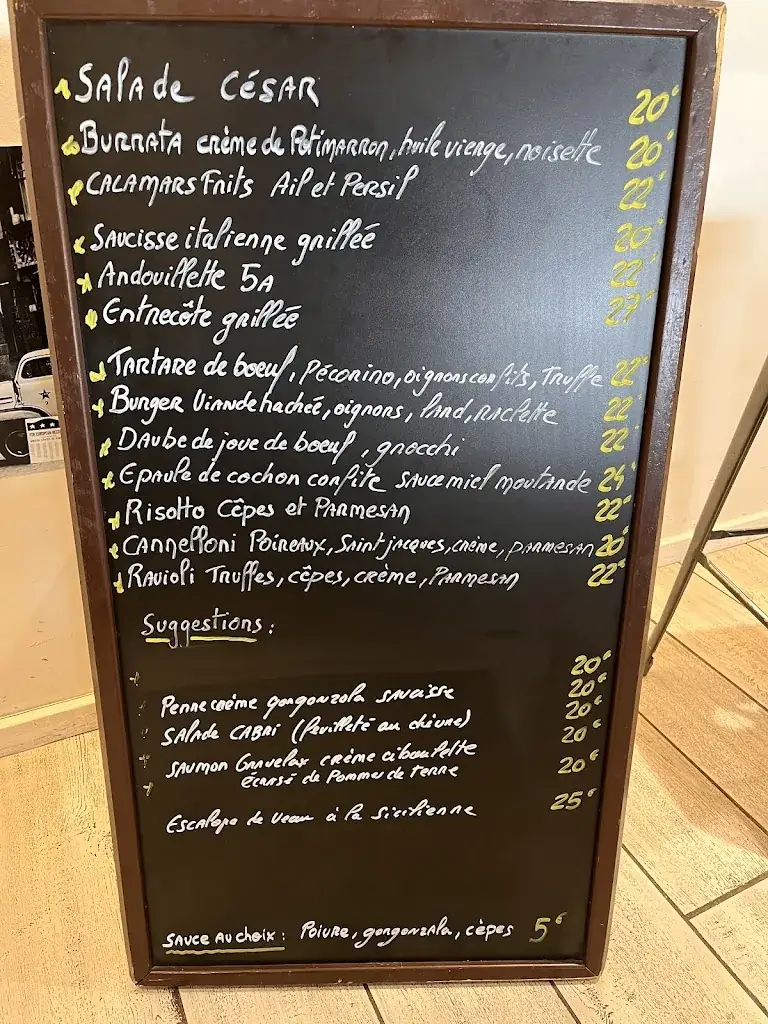 SALADE CÉSAR 20€
BURRATA crème de Potimarron, huile vierge, noisette 20€
CALAMARS Frits Ail et Persil 22€
Saucisse italienne grillée 20€
Andouillette 5A 22€
Entrecôte grillée 27€
TARTARE de boeuf, Pécorino, oignons confits, Truffe 22€
Burger Viande hachée, oignons, lard, raclette 22€
Daube de joue de boeuf, gnocchi 22€
Epaule de cochon confite sauce miel moutarde 24€
Risotto Cêpes et PARMESAN 22€
CANNELLONI Poireaux, Saint jacques, crème, parmesan 20€
Ravioli Truffes, cêpes, crème, Parmesan 22€
Suggestions :
20€
Penne crème gorgonzola saucisse 20€
Salade CABRI (feuilleté au chèvre) 20€
SAUMON Gravelax crème ciboulette 20€
écrasé de Pomme de terre 20€
Escalope de veau à la sicilienne 25€
SAUCE AU choix : Poivre, gorgonzala, cèpes 5€